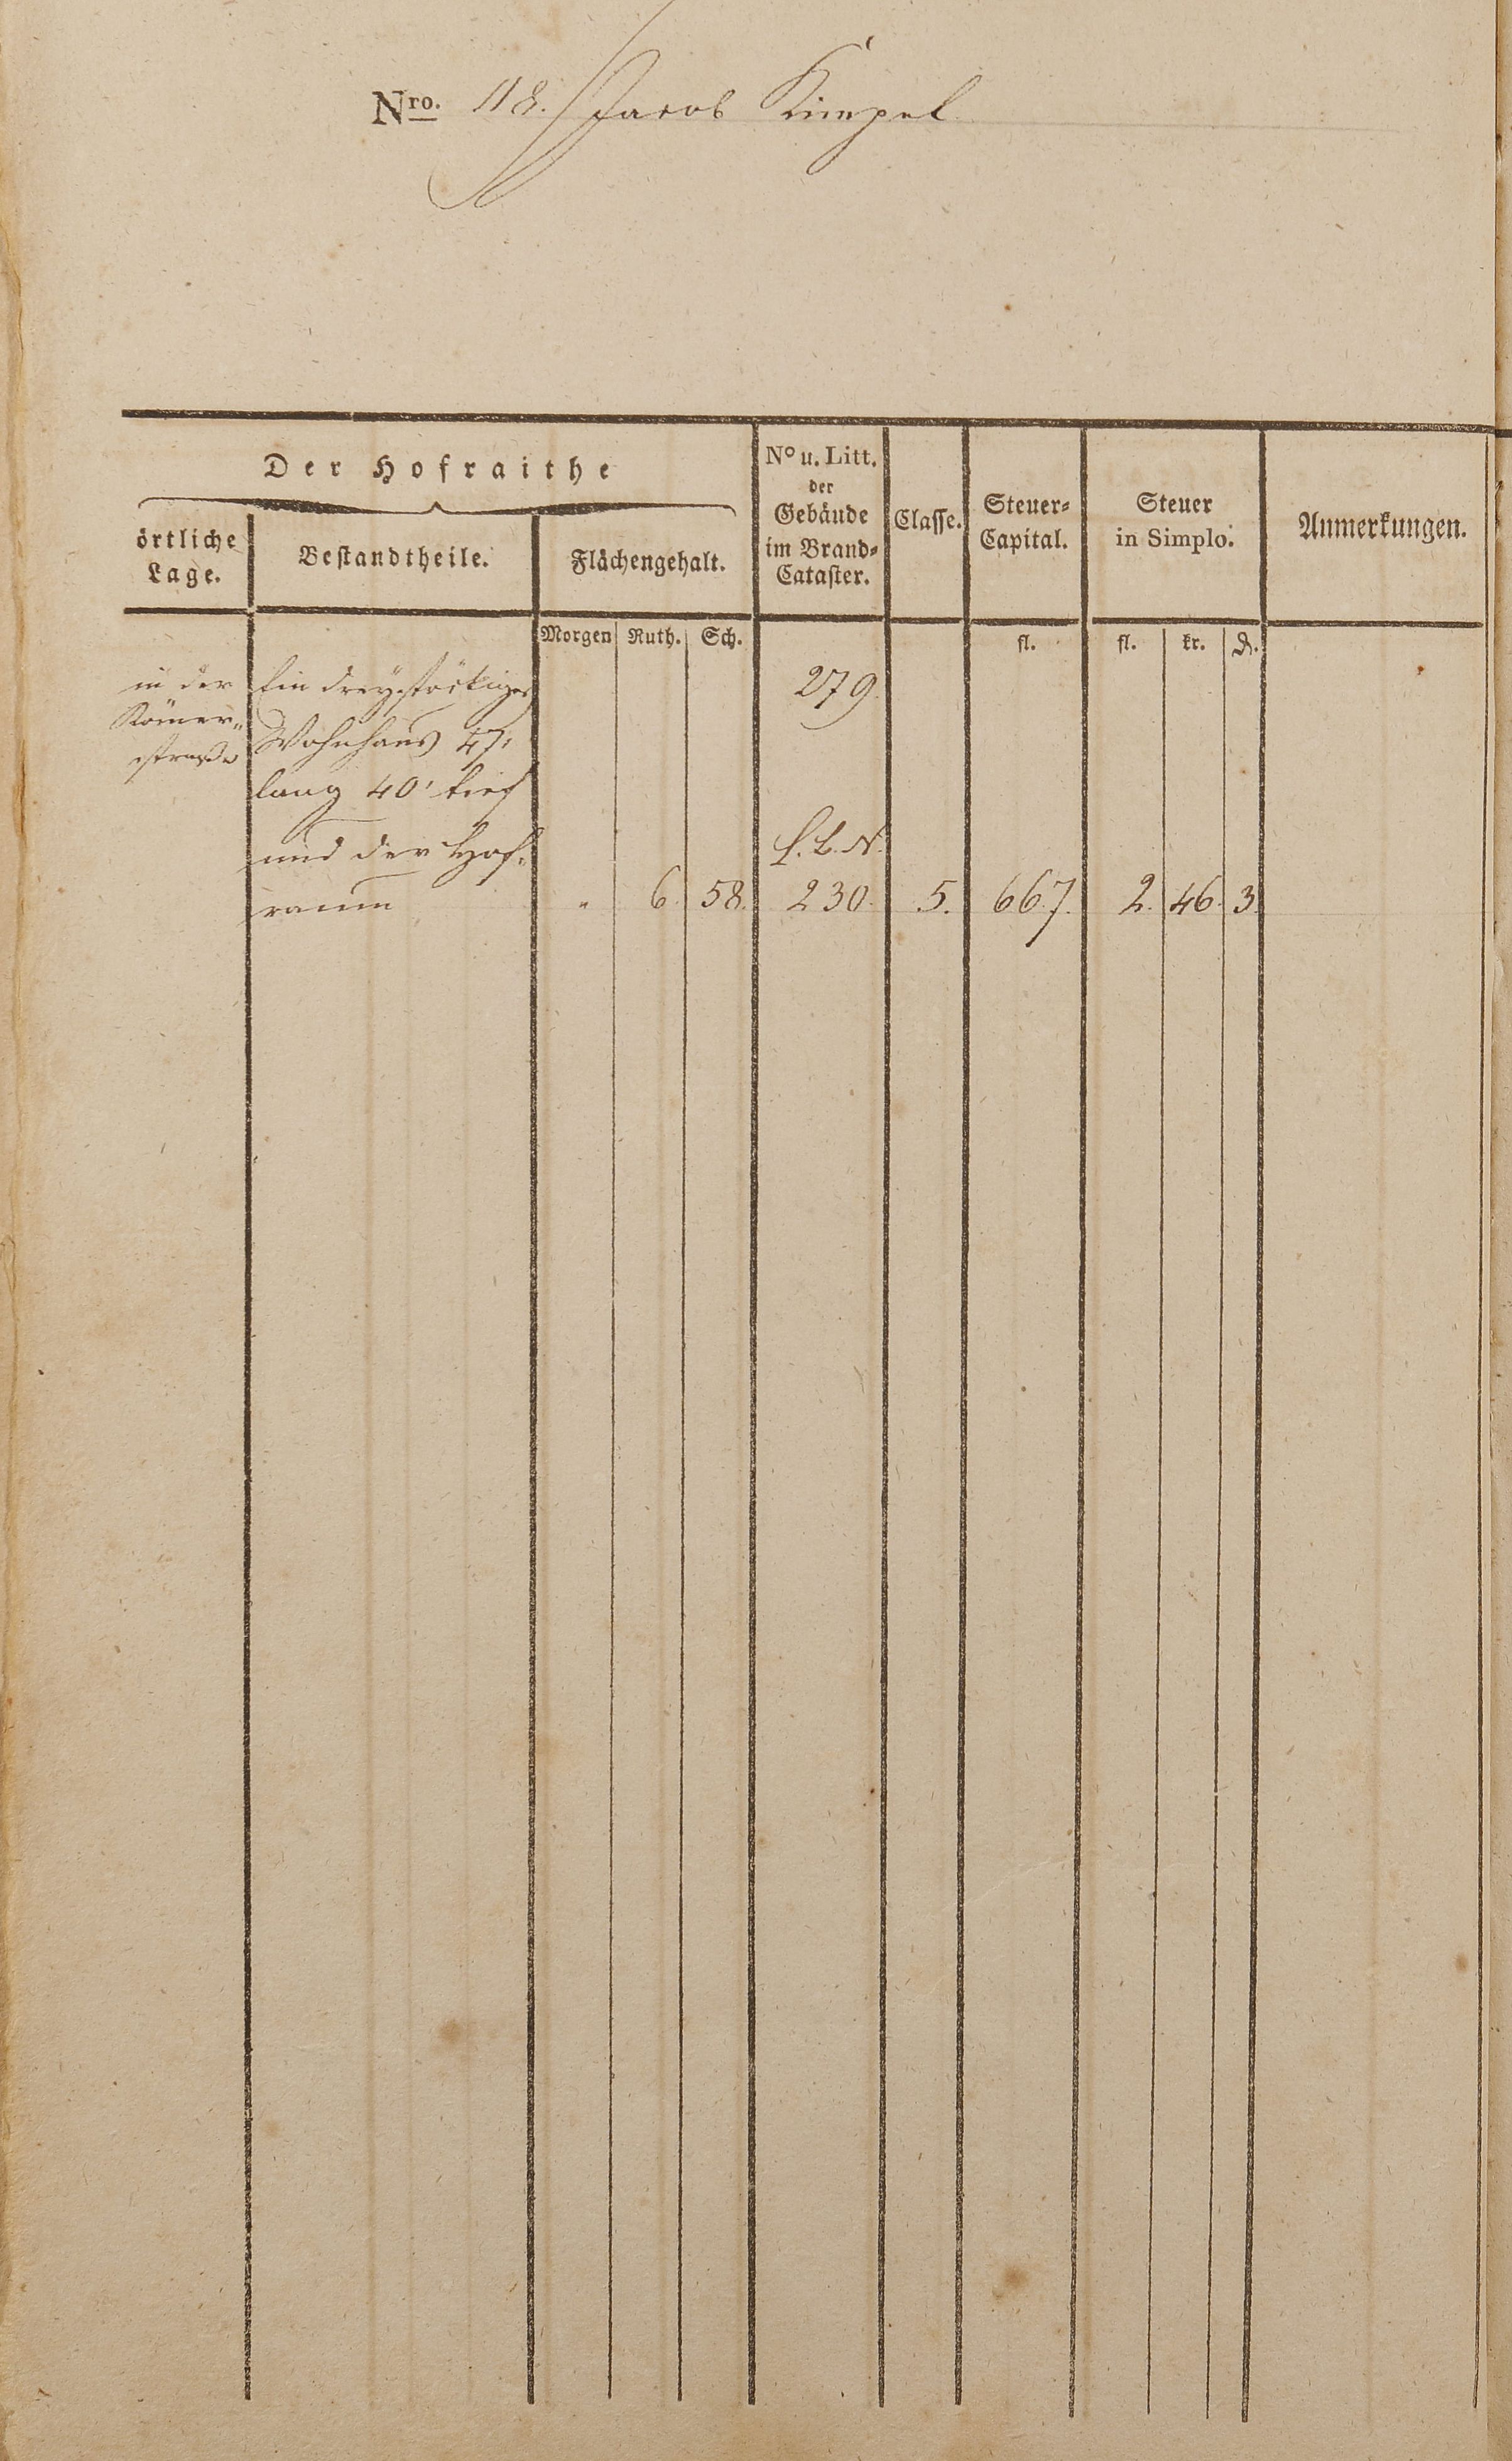 Nro. 118. Jacob Kimpel
Der Hofraithe
örtliche Lage.
Bestandtheile.
Flächengehalt.
No u. Litt. der Gebäude im Brand-Cataster.
Classe.
Steuer-Capital.
Steuer in Simplo.
Anmerkungen.
Morgen Ruth. Sch. fl. fl. kr. ₰.
in der Ein dreystöckiges 279.
Römer- Wohnhaus 47'
straße lang 40' tief
und der Hof- f. L. N.
raum " 6. 58. 230. 5. 667. 2. 46. 3.